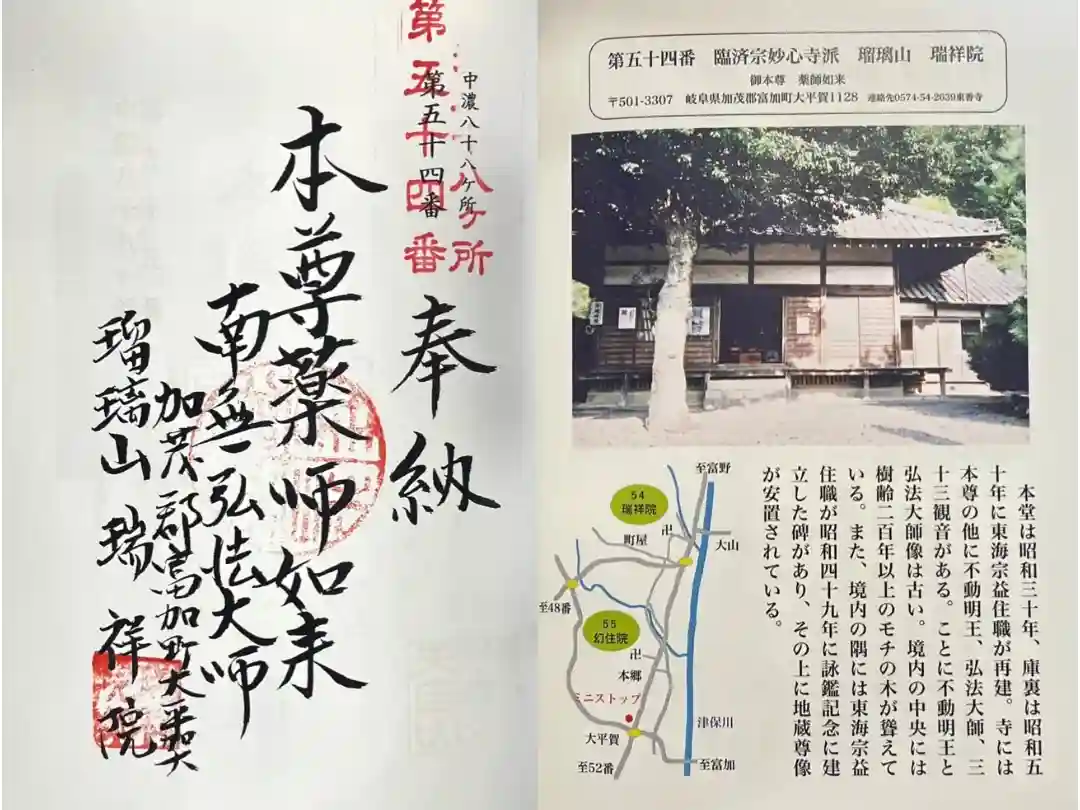 中濃八十八ヶ所
第五十四番
八ヶ所
第五十四番
奉納
本尊薬師如来
南無弘法大師
加茂郡富加町大平賀
瑠璃山 瑞祥院
第五十四番 臨済宗妙心寺派 瑠璃山 瑞祥院
御本尊 薬師如来
〒501-3307 岐阜県加茂郡富加町大平賀1128 連絡先0574-54-2639東香寺
本堂は昭和三十年、庫裏は昭和五
十年に東海宗益住職が再建。寺には
本尊の他に不動明王、弘法大師、三
十三観音がある。ことに不動明王と
弘法大師像は古い。境内の中央には
樹齢二百年以上のモチの木が聳えて
いる。また、境内の隅には東海宗益
住職が昭和四十九年に詠鑑記念に建
立した碑があり、その上に地蔵尊像
が安置されている。
至富野
54
瑞祥院
卍
町屋
大山
至48番
55
幻住院
卍
本郷
ミニストップ
津保川
大平賀
至52番
至富加